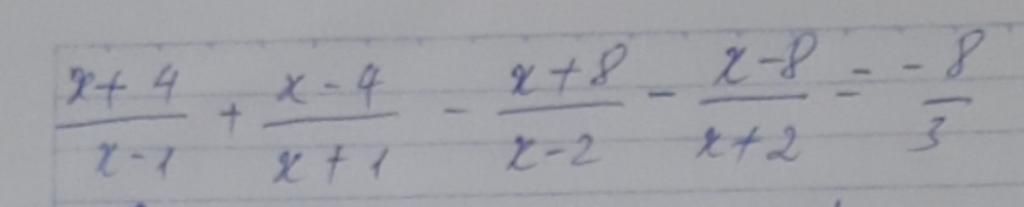 x+4/x-1 + x-4/x+1 - x+8/x-2 - x-8/x+2 = -8/3